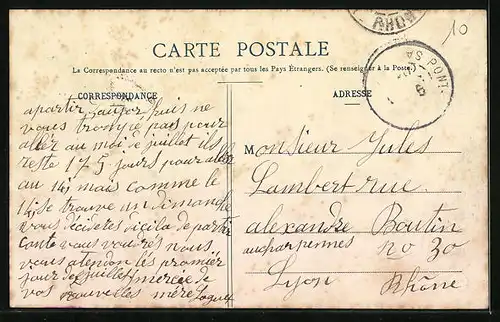 RHONE
10
CARTE POSTALE
La Correspondance au recto n'est pas acceptée par tous les Pays Étrangers. (Se renseigner à la Poste)
CORRESPONDANCE
ADRESSE
PONT
apartir ne
vous trompe pas pour
aller au moi de juillet ils
reste 175 jours pour aller
au 14 mais comme le
14 se trouve un dimanche
vous décideres dicila de partir
cante vous voudrés nous
vous atendon lés promiér
jour de juillet mercie de
vos nouvelles mére
Monsieur Jules
Lambert rue
alexandre Boutin
aucharpennes no 30
Lyon Rhône